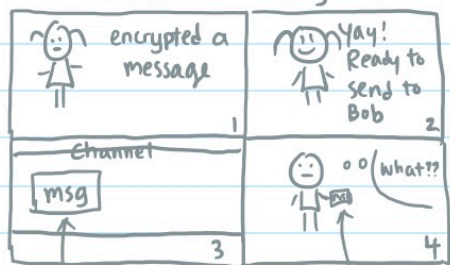 encrypted a
message
1
Yay!
Ready to
send to
Bob
2
Channel
msg
3
what??
4